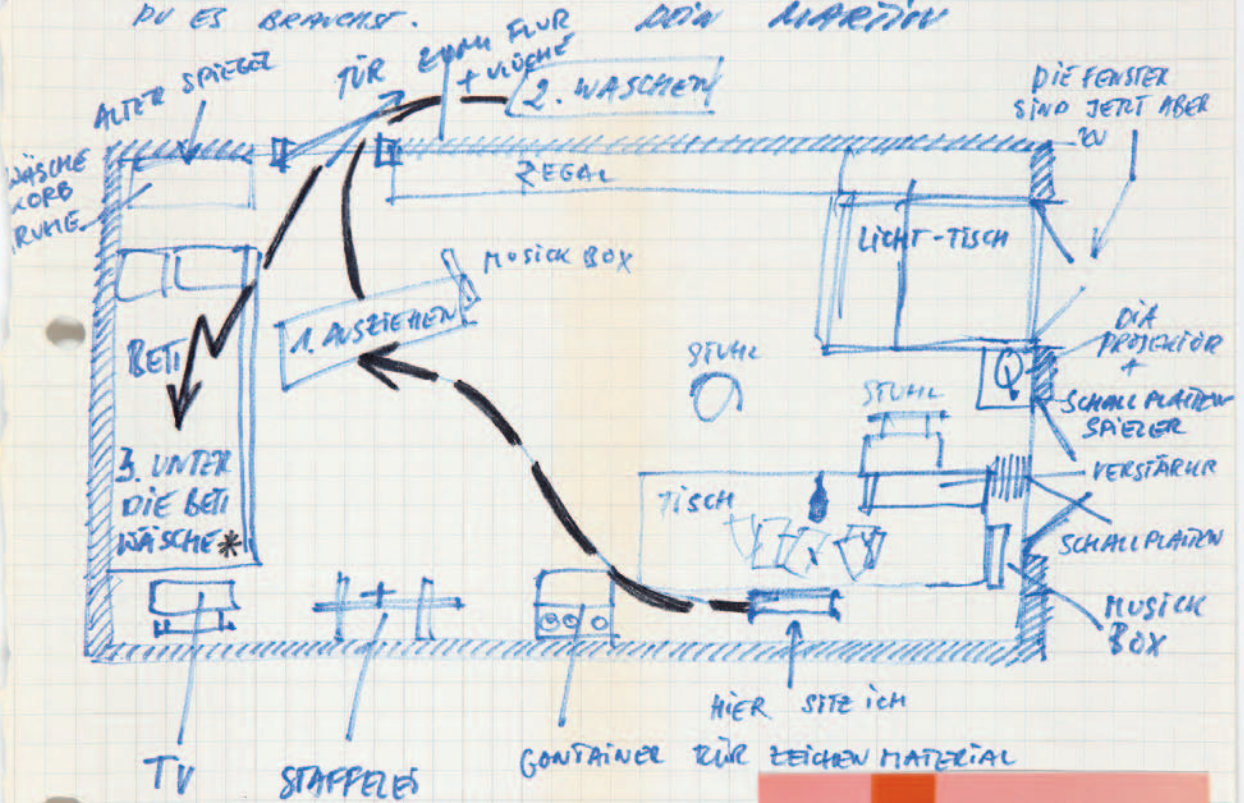 DU ES BRAUCHST. DEIN MARTIN
ALTER SPIEGEL
TÜR ZUM FLUR
+ KÜCHE
2. WASCHEN
DIE FENSTER
SIND JETZT ABER
ZU
WÄSCHE
KORB
TRUHE
REGAL
LICHT-TISCH
MUSICK BOX
1. AUSZIEHEN
BETT
3. UNTER
DIE BETT
WÄSCHE*
STUHL
STUHL
DIA
PROJEKTOR
+
SCHALLPLATTEN
SPIELER
VERSTÄRKER
TISCH
SCHALLPLATTEN
MUSICK
BOX
HIER SITZ ICH
TV
STAFFELEI
CONTAINER FÜR ZEICHENMATERIAL